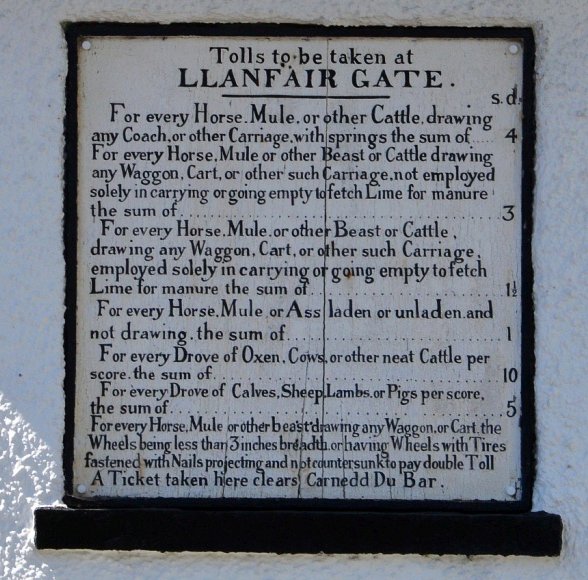 Tolls to be taken at
LLANFAIR GATE.
s. d.
For every Horse. Mule. or other Cattle. drawing
any Coach. or other Carriage. with springs the sum of.... 4
For every Horse. Mule or other Beast or Cattle drawing
any Waggon, Cart, or other such Carriage, not employed
solely in carrying or going empty to fetch Lime for manure
the sum of........ 3
For every Horse. Mule. or other Beast or Cattle.
drawing any Waggon, Cart, or other such Carriage,
employed solely in carrying or going empty to fetch
Lime for manure the sum of........ 1½
For every Horse. Mule or Ass laden or unladen. and
not drawing. the sum of........ 1
For every Drove of Oxen. Cows. or other neat Cattle per
score. the sum of........ 10
For every Drove of Calves, Sheep, Lambs. or Pigs per score,
the sum of........ 5
For every Horse, Mule or other beast drawing any Waggon, or Cart. the
Wheels being less than 3 inches breadth. or having Wheels with Tires
fastened with Nails projecting and not countersunk to pay double Toll
A Ticket taken here clears Carnedd Du Bar.